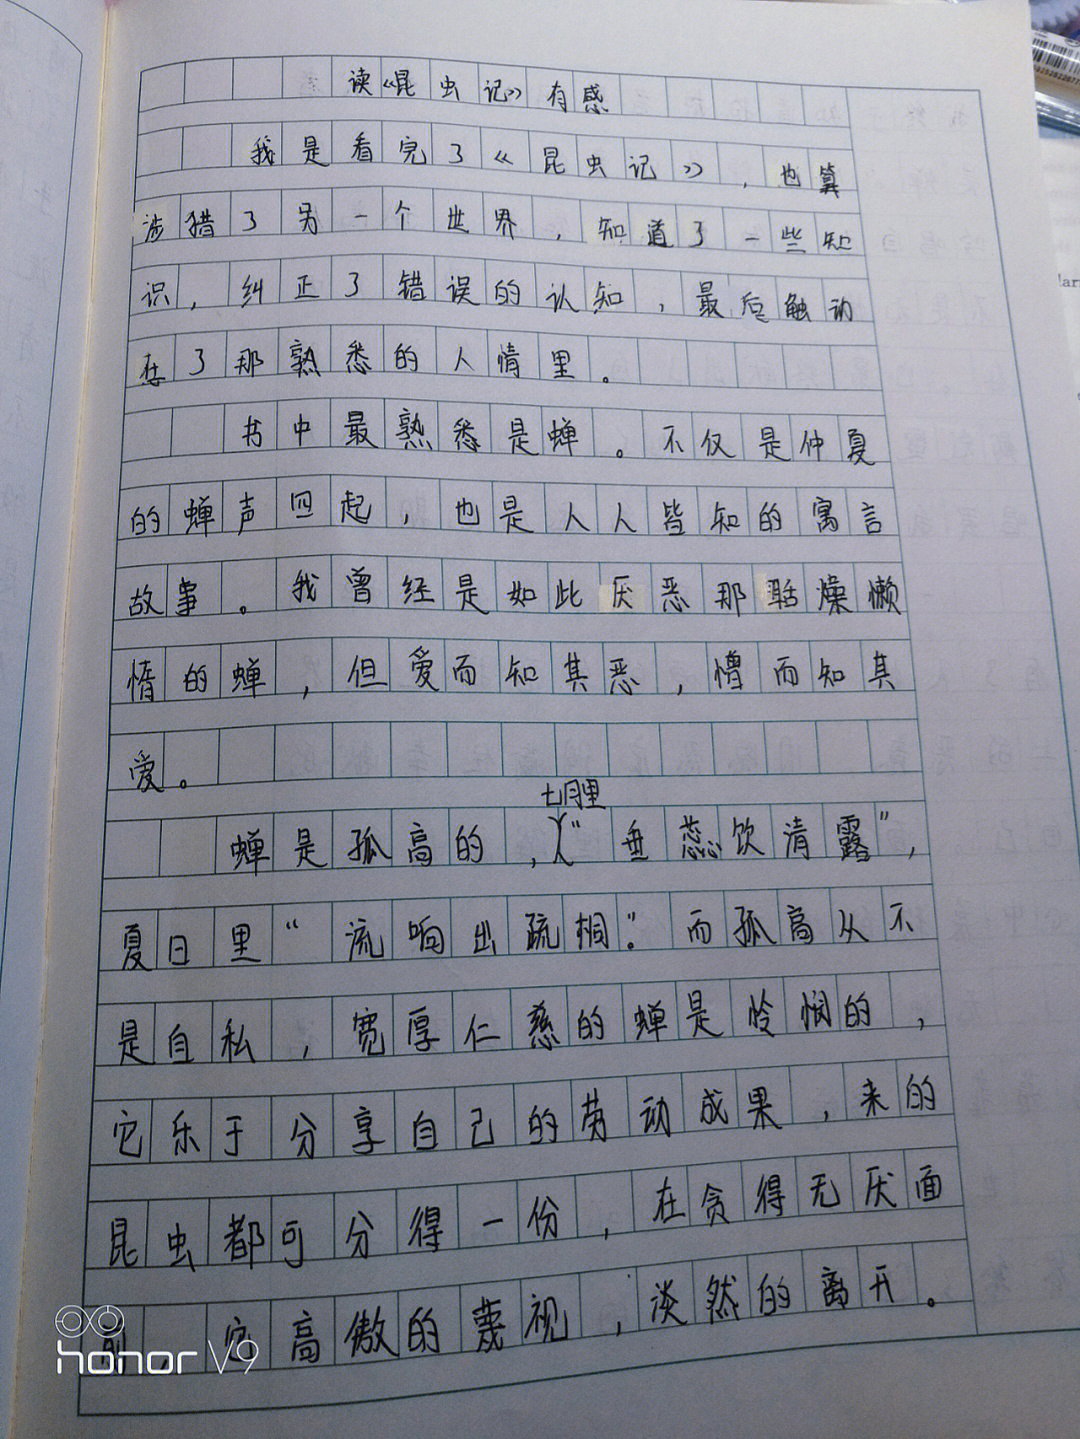 读《昆虫记》有感
我是看完了《昆虫记》，也算
涉猎了另一个世界，知道了一些知
识，纠正了错误的认知，最后触动
在了那熟悉的人情里。
书中最熟悉是蝉。不仅是仲夏
的蝉声四起，也是人人皆知的寓言
故事。我曾经是如此厌恶那聒燥懒
惰的蝉，但爱而知其恶，憎而知其
爱。
七月里
蝉是孤高的，“垂蕊饮清露”，
夏日里“流响出疏桐”。而孤高从不
是自私，宽厚仁慈的蝉是怜悯的，
它乐于分享自己的劳动成果，来的
昆虫都可分得一份，在贪得无厌面
前，它高傲的蔑视，淡然的离开。
honor V9